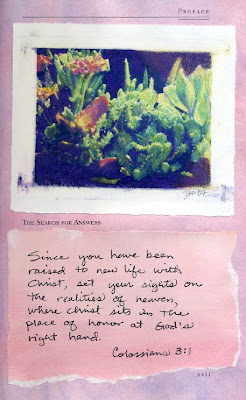 PREFACE
THE SEARCH FOR ANSWERS
Since you have been
raised to new life with
Christ, set your sights on
the realities of heaven,
where Christ sits in the
place of honor at God's
right hand.
Colossians 3:1
xvii